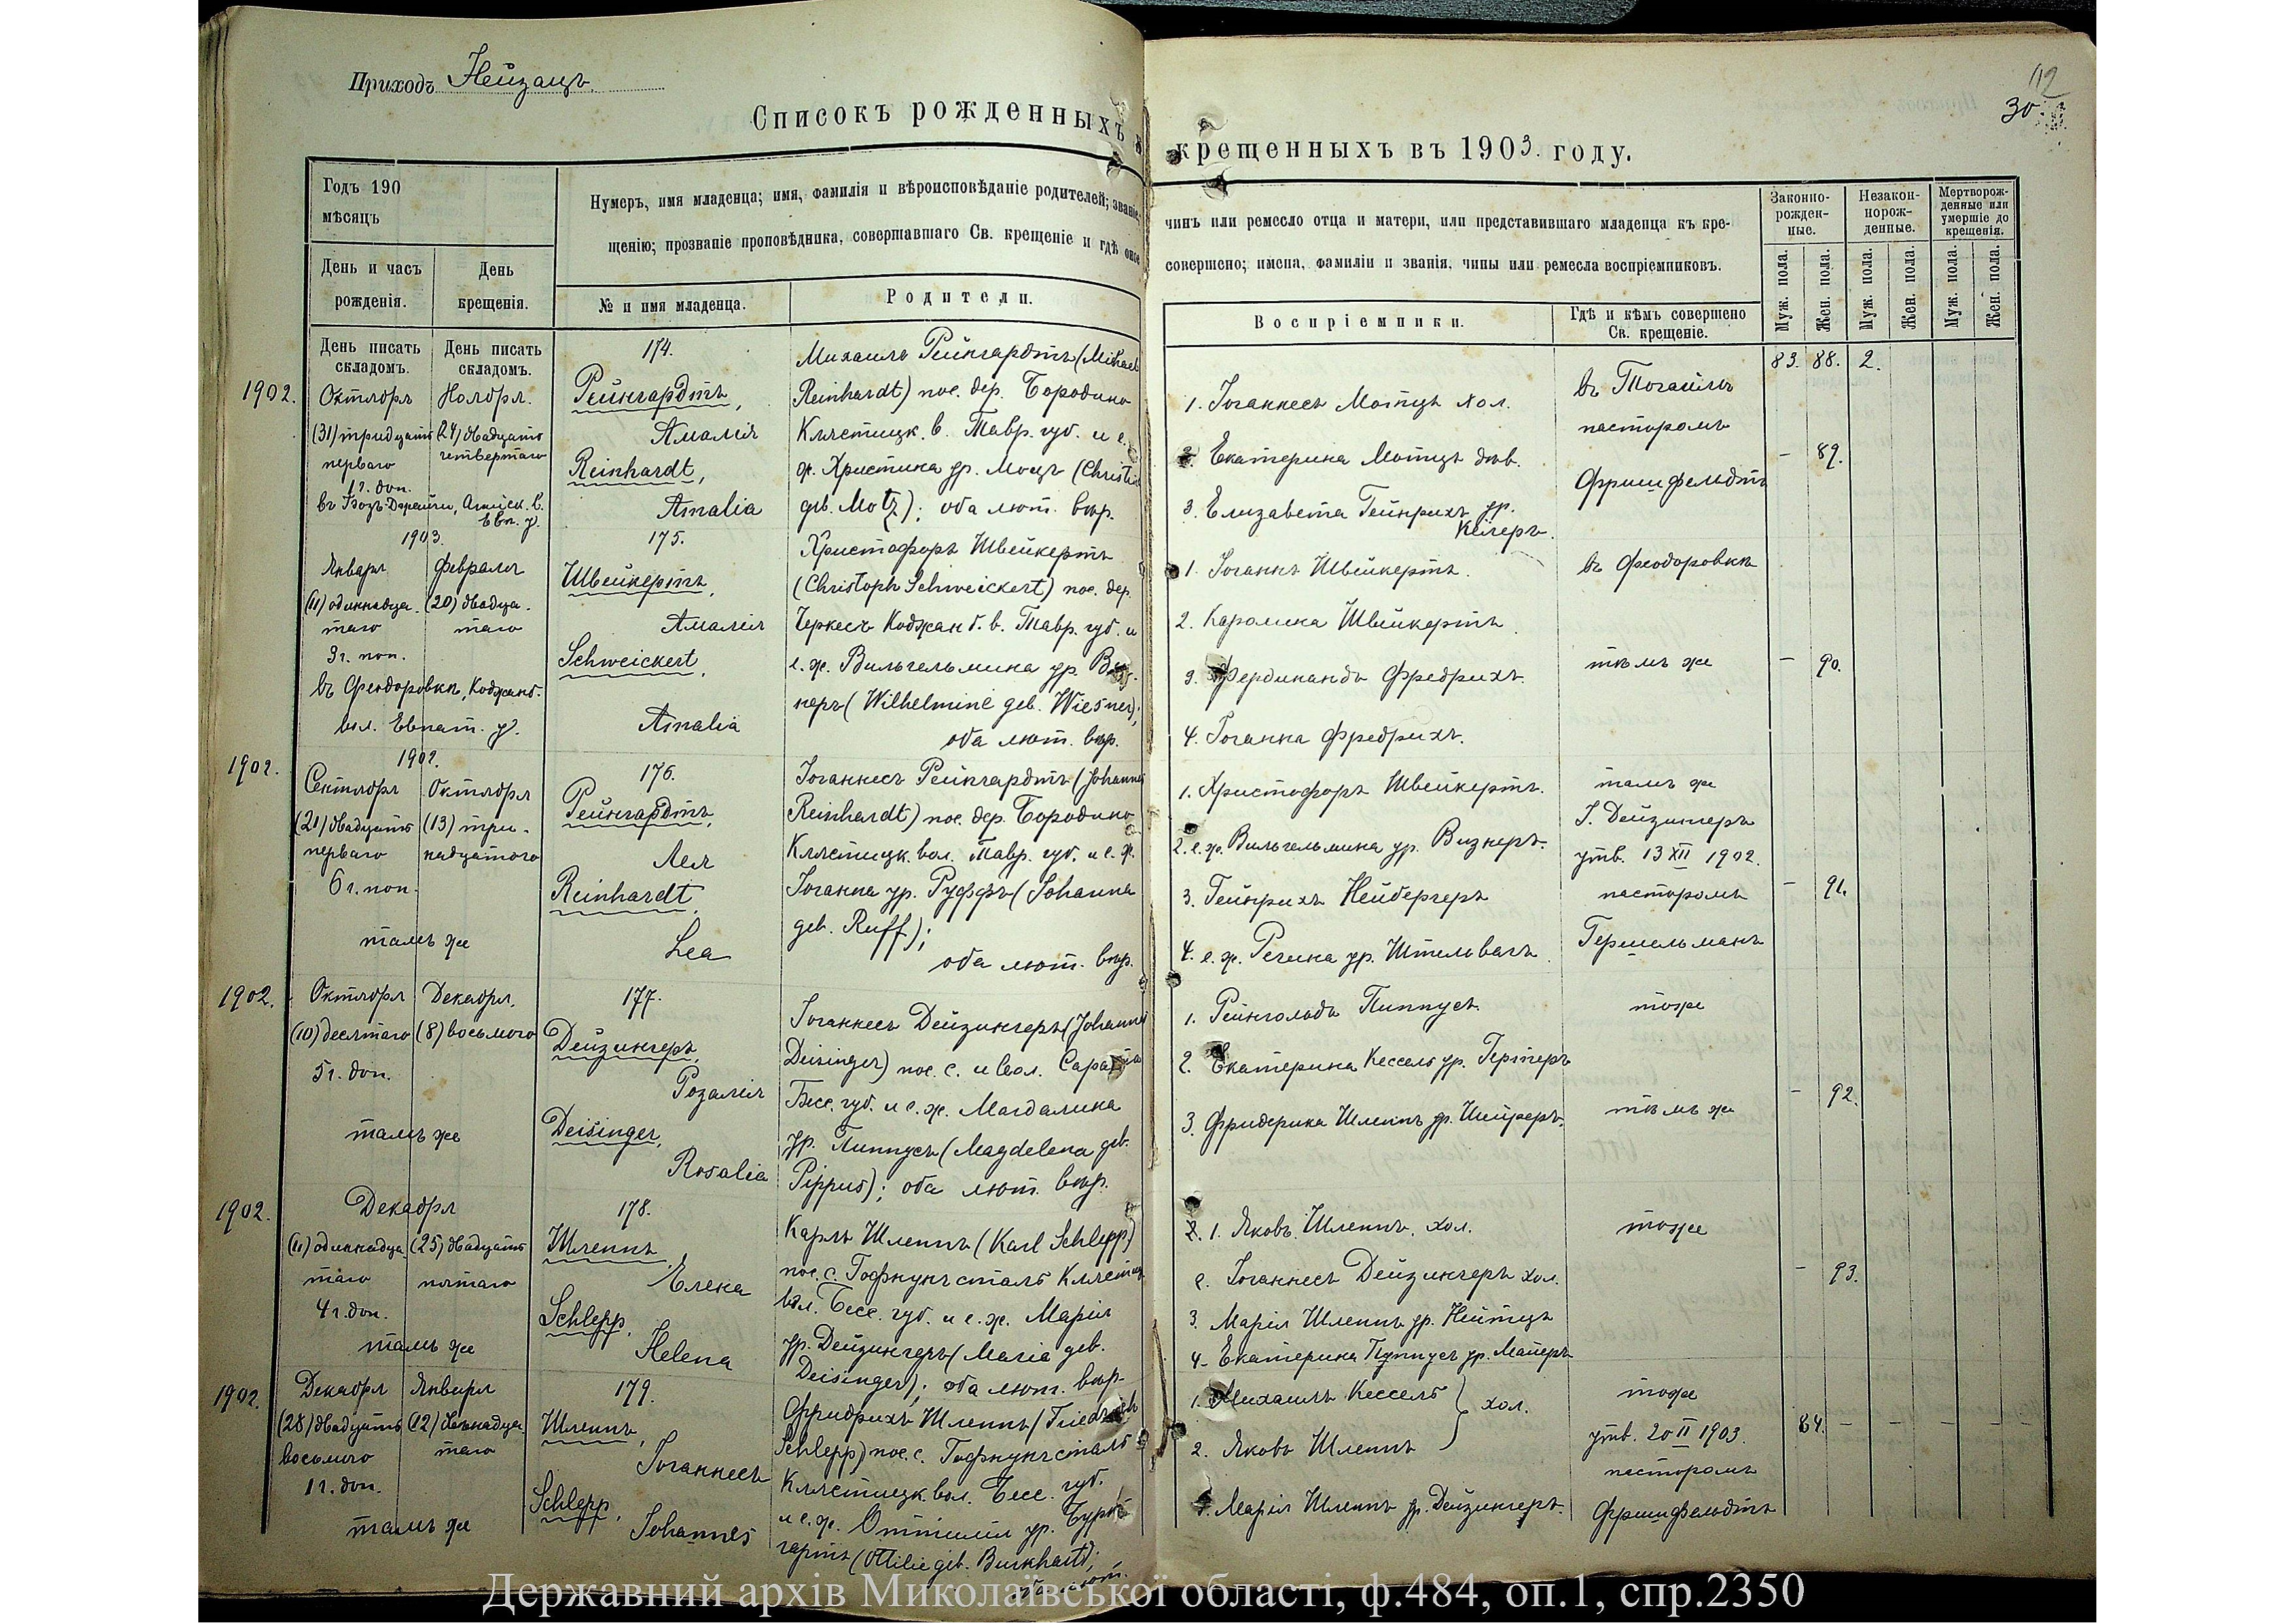 Приходъ Нейзацъ
112
30
Списокъ рожденныхъ и крещенныхъ въ 1903. году.
Годъ 190
мѣсяцъ
Нумеръ, имя младенца; имя, фамилія и вѣроисповѣданіе родителей; званіе,
щенію; прозваніе проповѣдника, совершавшаго Св. крещеніе и гдѣ оное
День и часъ
рожденія.
День
крещенія.
№ и имя младенца.
Родители.
чинъ или ремесло отца и матери, или представившаго младенца къ кре-
совершено; имена, фамиліи и званія, чины или ремесла воспріемниковъ.
Воспріемники.
Гдѣ и кѣмъ совершено
Св. крещеніе.
Законно-
рожден-
ные.
Незакон-
норож-
денные.
Мертворож-
денные или
умершіе до
крещенія.
Муж. пола.
Жен. пола.
Муж. пола.
Жен. пола.
Муж. пола.
Жен. пола.
День писать
складомъ.
День писать
складомъ.
83. 88. 2.
1902.
Октября
(31) тридцать
перваго
1 г. доп.
Ноября.
(24) двадцать
четвертаго
174.
Рейнгардтъ,
Амалія
Reinhardt,
Amalia
Михаилъ Рейнгардтъ (Michael
Reinhardt) пос. дер. Бородино
Клястицк. в. Тавр. губ. и е.
ж. Христина ур. Моцъ (Christina
geb. Motz); оба лют. вѣр.
1. Іоганнесъ Мотцъ хол.
2. Екатерина Мотцъ дѣв.
3. Елизавета Гейнрихъ ур.
Келеръ.
пасторомъ
– 89.
1903.
Января
(11) одиннадца-
таго
3 г. поп.
въ Феодоровкѣ, Коджанб.
вол. Евпат. у.
Февраля
(20) двадца-
таго
175.
Швейкертъ,
Амалія
Schweickert,
Amalia
Христофоръ Швейкертъ
(Christoph Schweickert) пос. дер.
Черкесъ Коджанб. в. Тавр. губ. и
е. ж. Вильгельмина ур. Виз-
неръ (Wilhelmine geb. Wiesner);
оба лют. вѣр.
1. Іоганнъ Швейкертъ.
2. Каролина Швейкертъ
3. Фердинандъ Фредрихъ.
4. Іоганна Фредрихъ.
въ Феодоровкѣ
тѣмъ же
– 90.
1902.
1902.
Сентября
(21) двадцать
перваго
6 г. поп.
тамъ же
Октября
(13) три-
надцатаго
176.
Рейнгардтъ,
Лея
Reinhardt,
Lea
Іоганнесъ Рейнгардтъ (Johannes
Reinhardt) пос. дер. Бородино
Клястицк. вол. Тавр. губ. и е. ж.
Іоганна ур. Руффъ (Johanna
geb. Ruff);
оба лют. вѣр.
1. Христофоръ Швейкертъ.
2. е. ж. Вильгельмина ур. Визнеръ.
3. Гейнрихъ Нейбергеръ
4. е. ж. Регина ур. Штельвагъ
тамъ же
І. Дейзингеръ
утв. 13 XII 1902.
пасторомъ
Гершельманъ
– 91.
1902.
Октября
(10) десятаго
5 г. доп.
тамъ же
Декабря.
(8) восьмого
177.
Дейзингеръ,
Розалія
Deisinger,
Rosalia
Іоганнесъ Дейзингеръ (Johannes
Deisinger) пос. с. и вол. Сарата
Бесс. губ. и е. ж. Магдалина
ур. Пиппусъ (Magdelena geb.
Pippus); оба лют. вѣр.
1. Рейнгольдъ Пиппусъ.
2. Екатерина Кессель ур.
3. Фридерика Шлеппъ ур.
тоже
тѣмъ же
– 92.
1902.
Декабря
(11) одиннадца
таго
4 г. доп.
тамъ же
(25) двадцать
пятаго
178.
Шлеппъ,
Елена
Schlepp,
Helena
Карлъ Шлеппъ (Karl Schlepp)
пос. с. Гофнунгсталь Клястиц
вол. Бесс. губ. и е. ж. Марія
ур. Дейзингеръ (Maria geb.
Deisinger); оба лют. вѣр.
1. Яковъ Шлеппъ, хол.
2. Іоганнесъ Дейзингеръ хол.
3. Марія Шлеппъ ур.
4. Екатерина Пиппусъ ур. Майеръ
тоже
– 93.
1902.
Декабря
(28) двадцать
восьмого
1 г. доп.
тамъ же
Января
(12) двѣнадца
таго
179.
Шлеппъ,
Іоганнесъ
Schlepp,
Johannes
Фридрихъ Шлеппъ (Friedrich
Schlepp) пос. с. Гофнунгсталь
Клястицк. вол. Бесс. губ.
и е. ж. Оттилія ур. Бурк-
гартъ (Ottilie geb. Burkhardt);
1. Михаилъ Кессель } хол.
2. Яковъ Шлеппъ
3. Марія Шлеппъ ур. Дейзингеръ.
тоже
утв. 20 II 1903.
пасторомъ
84. – – – – –
Державний архів Миколаївської області, ф.484, оп.1, спр.2350